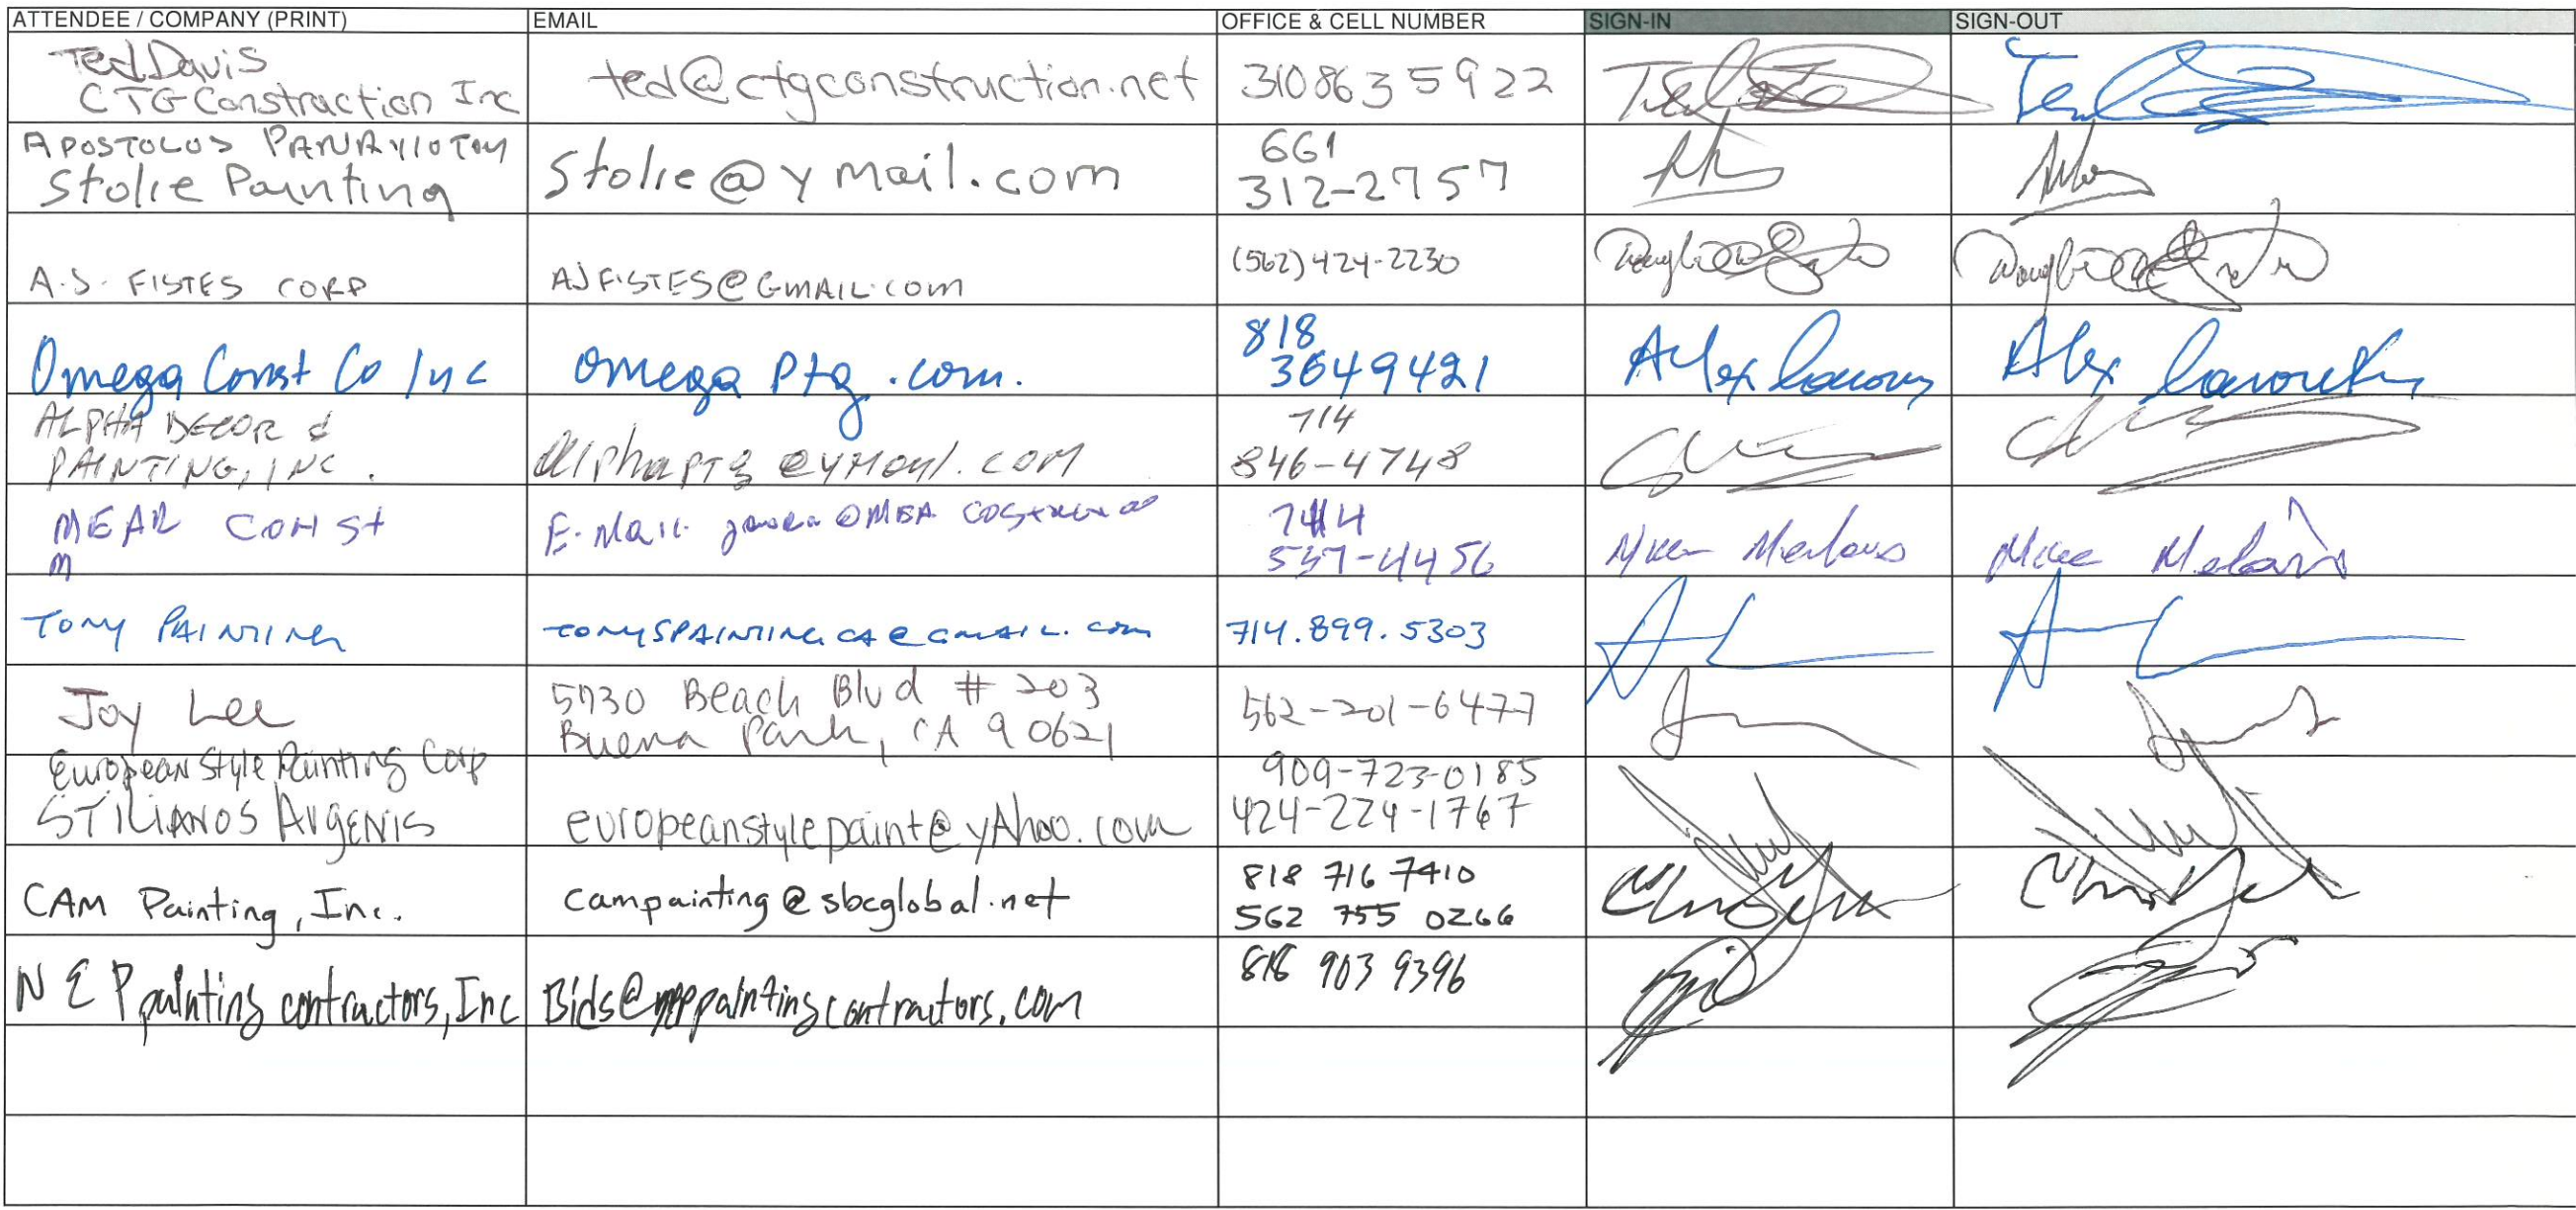 ATTENDEE / COMPANY (PRINT) EMAIL OFFICE & CELL NUMBER SIGN-IN SIGN-OUT
Ted Davis
CTG Construction Inc ted@ctgconstruction.net 3108635922
APOSTOLOS PANAYIOTOU
Stolie Painting Stolie@ymail.com 661
312-2757
A.J. FISTES CORP AJFISTES@GMAIL.COM (562)424-2230
Omega Const Co Inc omega ptg .com. 818
3649421 Alex Alex
ALPHA DECOR &
PAINTING, INC. alphaptg@ymail.com 714
846-4748
MEAR CONST
M E-Mail 714
537-4456 Mike
TONY PAINTING TONYSPAINTINGCA@GMAIL.COM 714.899.5303
Joy Lee 5730 Beach Blvd # 203
Buena Park, CA 90621 562-201-6477
European Style Painting Corp
STILIANOS AVGENIS europeanstylepaint@yAhoo.com 909-723-0185
424-224-1767
CAM Painting, Inc. campainting@sbcglobal.net 818 716 7410
562 755 0266
N E P painting contractors, Inc Bids@neppaintingcontractors.com 818 903 9396